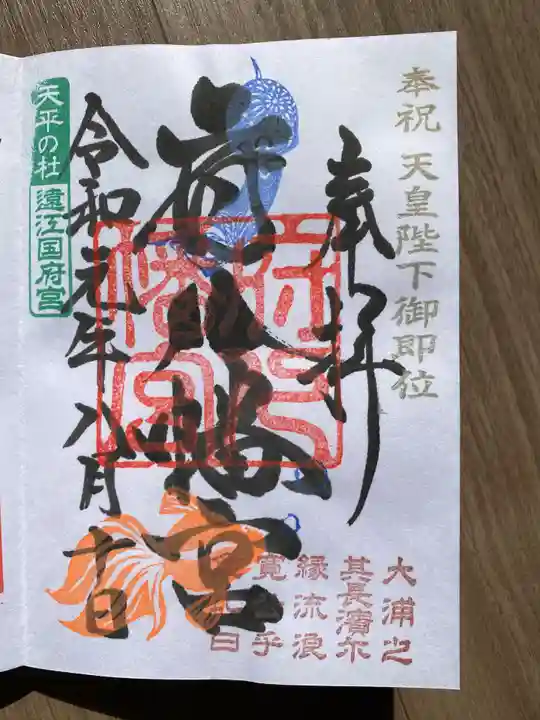 奉祝 天皇陛下御即位
奉拝
府八幡宮
令和元年八月十日
天平の杜
遠江国府宮
府八
幡宮
大浦之
其長濱尓
縁流浪
寛
乎
曰